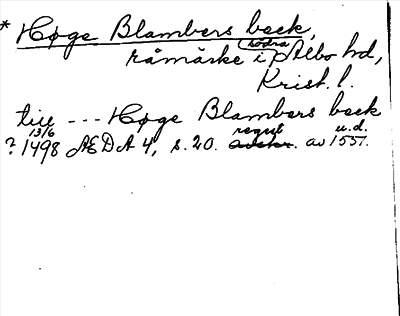 * Høge Blambers beck,
råmärke i södra Albo hd,
Krist. l.
till --- Høge Blambers beck
? 13/6 1498 ÆDA 4, s. 20. regest av u.d. 1557.